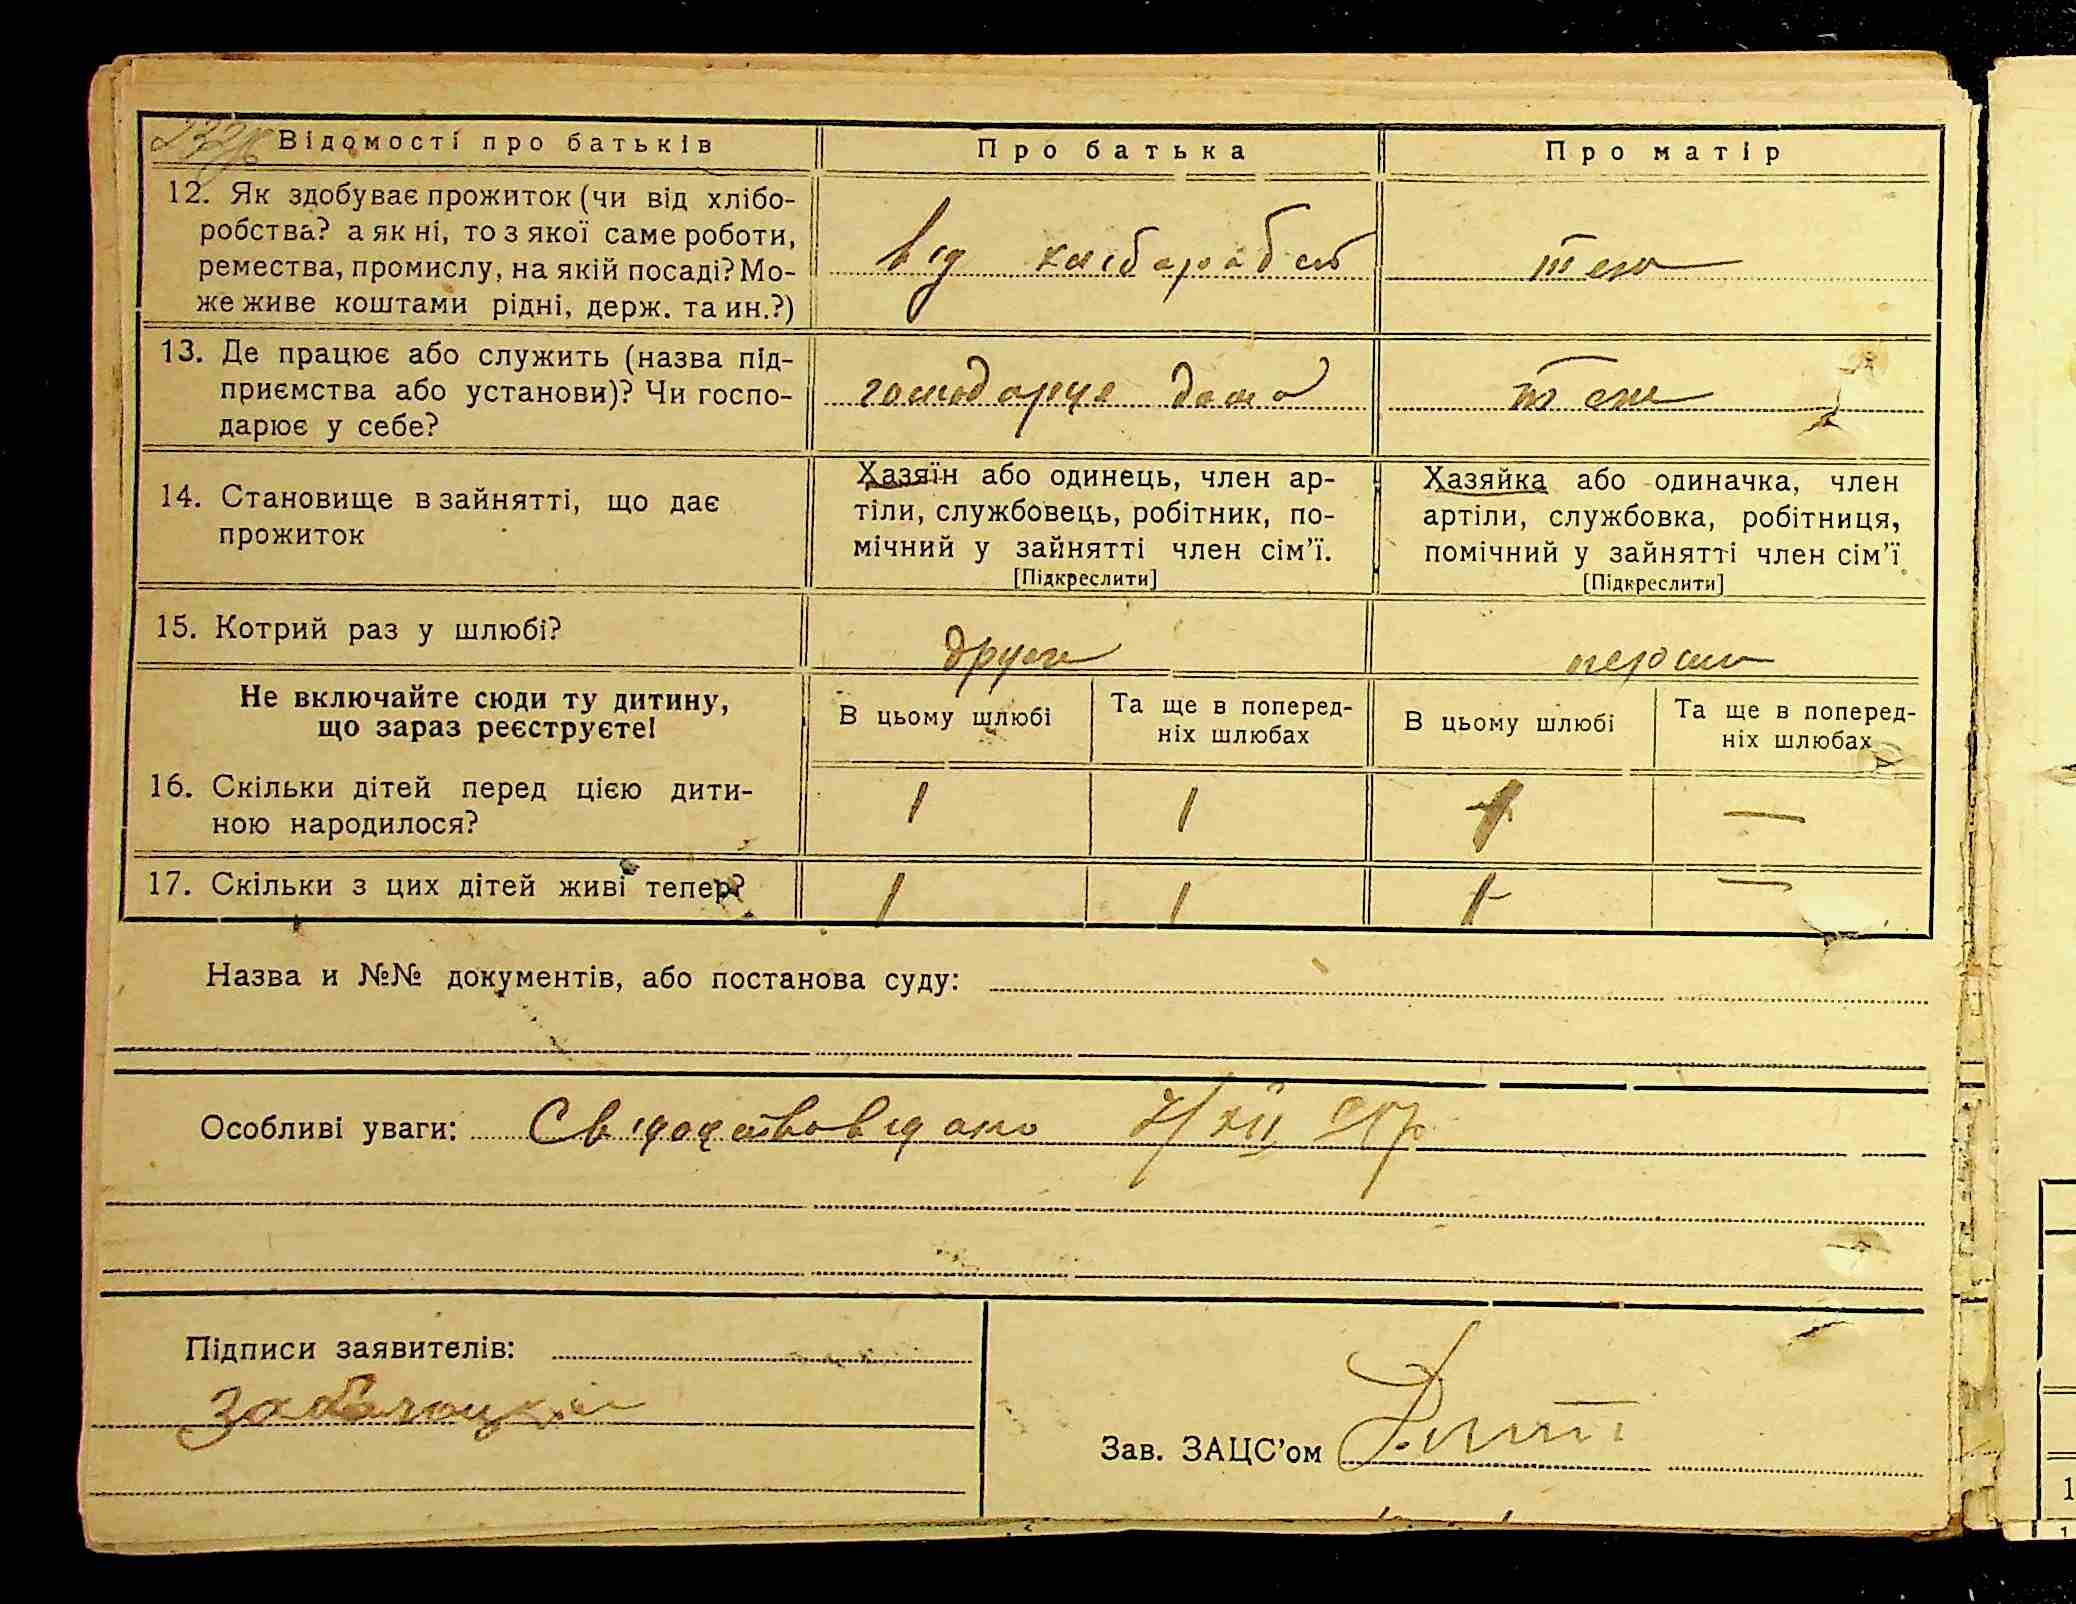 Відомості про батьків
Про батька
Про матір
12. Як здобуває прожиток (чи від хлібо-
робства? а як ні, то з якої саме роботи,
ремества, промислу, на якій посаді? Мо-
же живе коштами рідні, держ. та ин.?)
від хліборобст
теж
13. Де працює або служить (назва під-
приємства або установи)? Чи госпо-
дарює у себе?
господарує дома
теж
14. Становище в зайнятті, що дає
прожиток
Хазяїн або одинець, член ар-
тіли, службовець, робітник, по-
мічний у зайнятті член сім'ї.
[Підкреслити]
Хазяйка або одиначка, член
артіли, службовка, робітниця,
помічний у зайнятті член сім'ї
[Підкреслити]
15. Котрий раз у шлюбі?
друге
перше
Не включайте сюди ту дитину,
що зараз реєструєте!
В цьому шлюбі
Та ще в поперед-
ніх шлюбах
В цьому шлюбі
Та ще в поперед-
ніх шлюбах
16. Скільки дітей перед цією дити-
ною народилося?
1
1
1
—
17. Скільки з цих дітей живі тепер?
1
1
1
—
Назва и №№ документів, або постанова суду:
Особливі уваги:
7/XII
Підписи заявителів:
Зав. ЗАЦС'ом